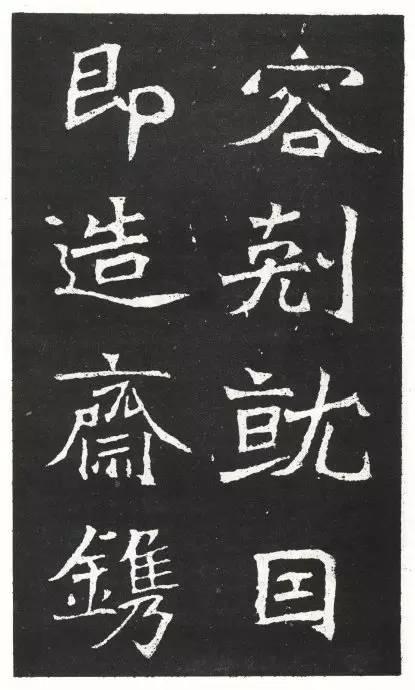 容剋就囯
即造齋鐫